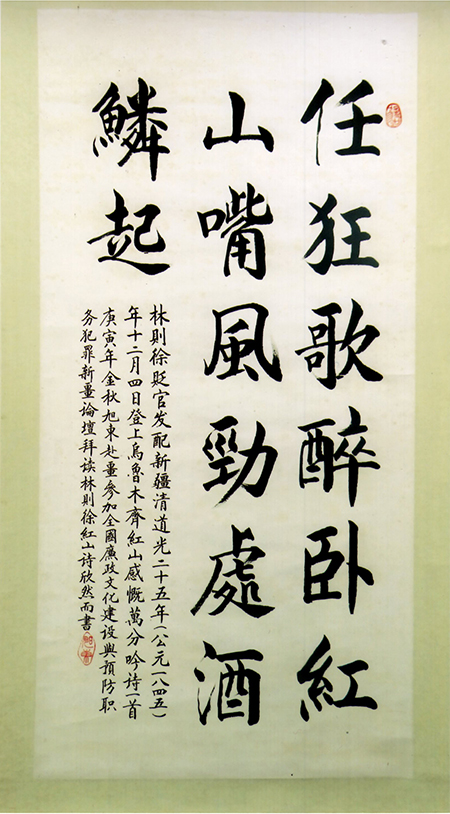 任狂歌醉卧紅
山嘴風勁處酒
鱗起
林則徐貶官发配新疆清道光二十五年(公元一八四五)
年十二月四日登上烏魯木齊紅山感慨萬分吟诗一首
庚寅年金秋旭東赴畺参加全國廉政文化建设與預防职
务犯罪新畺論壇拜读林则徐紅山诗欣然而書